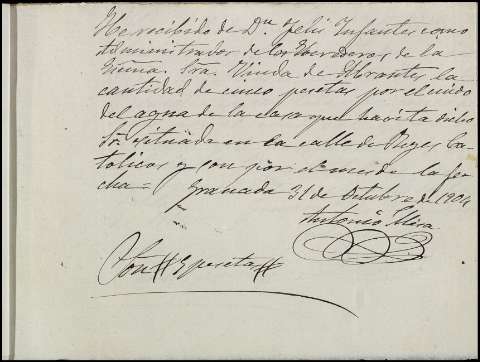 He recibido de Dn. Felix Infantes como
Administrador de los Herederos de la
Excma. Sra. Viuda de Abrantes, la
cantidad de cinco pesetas por el
del agua de la casa que havita dicho
Sr. situada en la calle de Reyes Ca-
tolicos y son por el mes de la fe-
cha = Granada 31 de Octubre de 1904
Antonio Mira
Son # 5 pesetas #